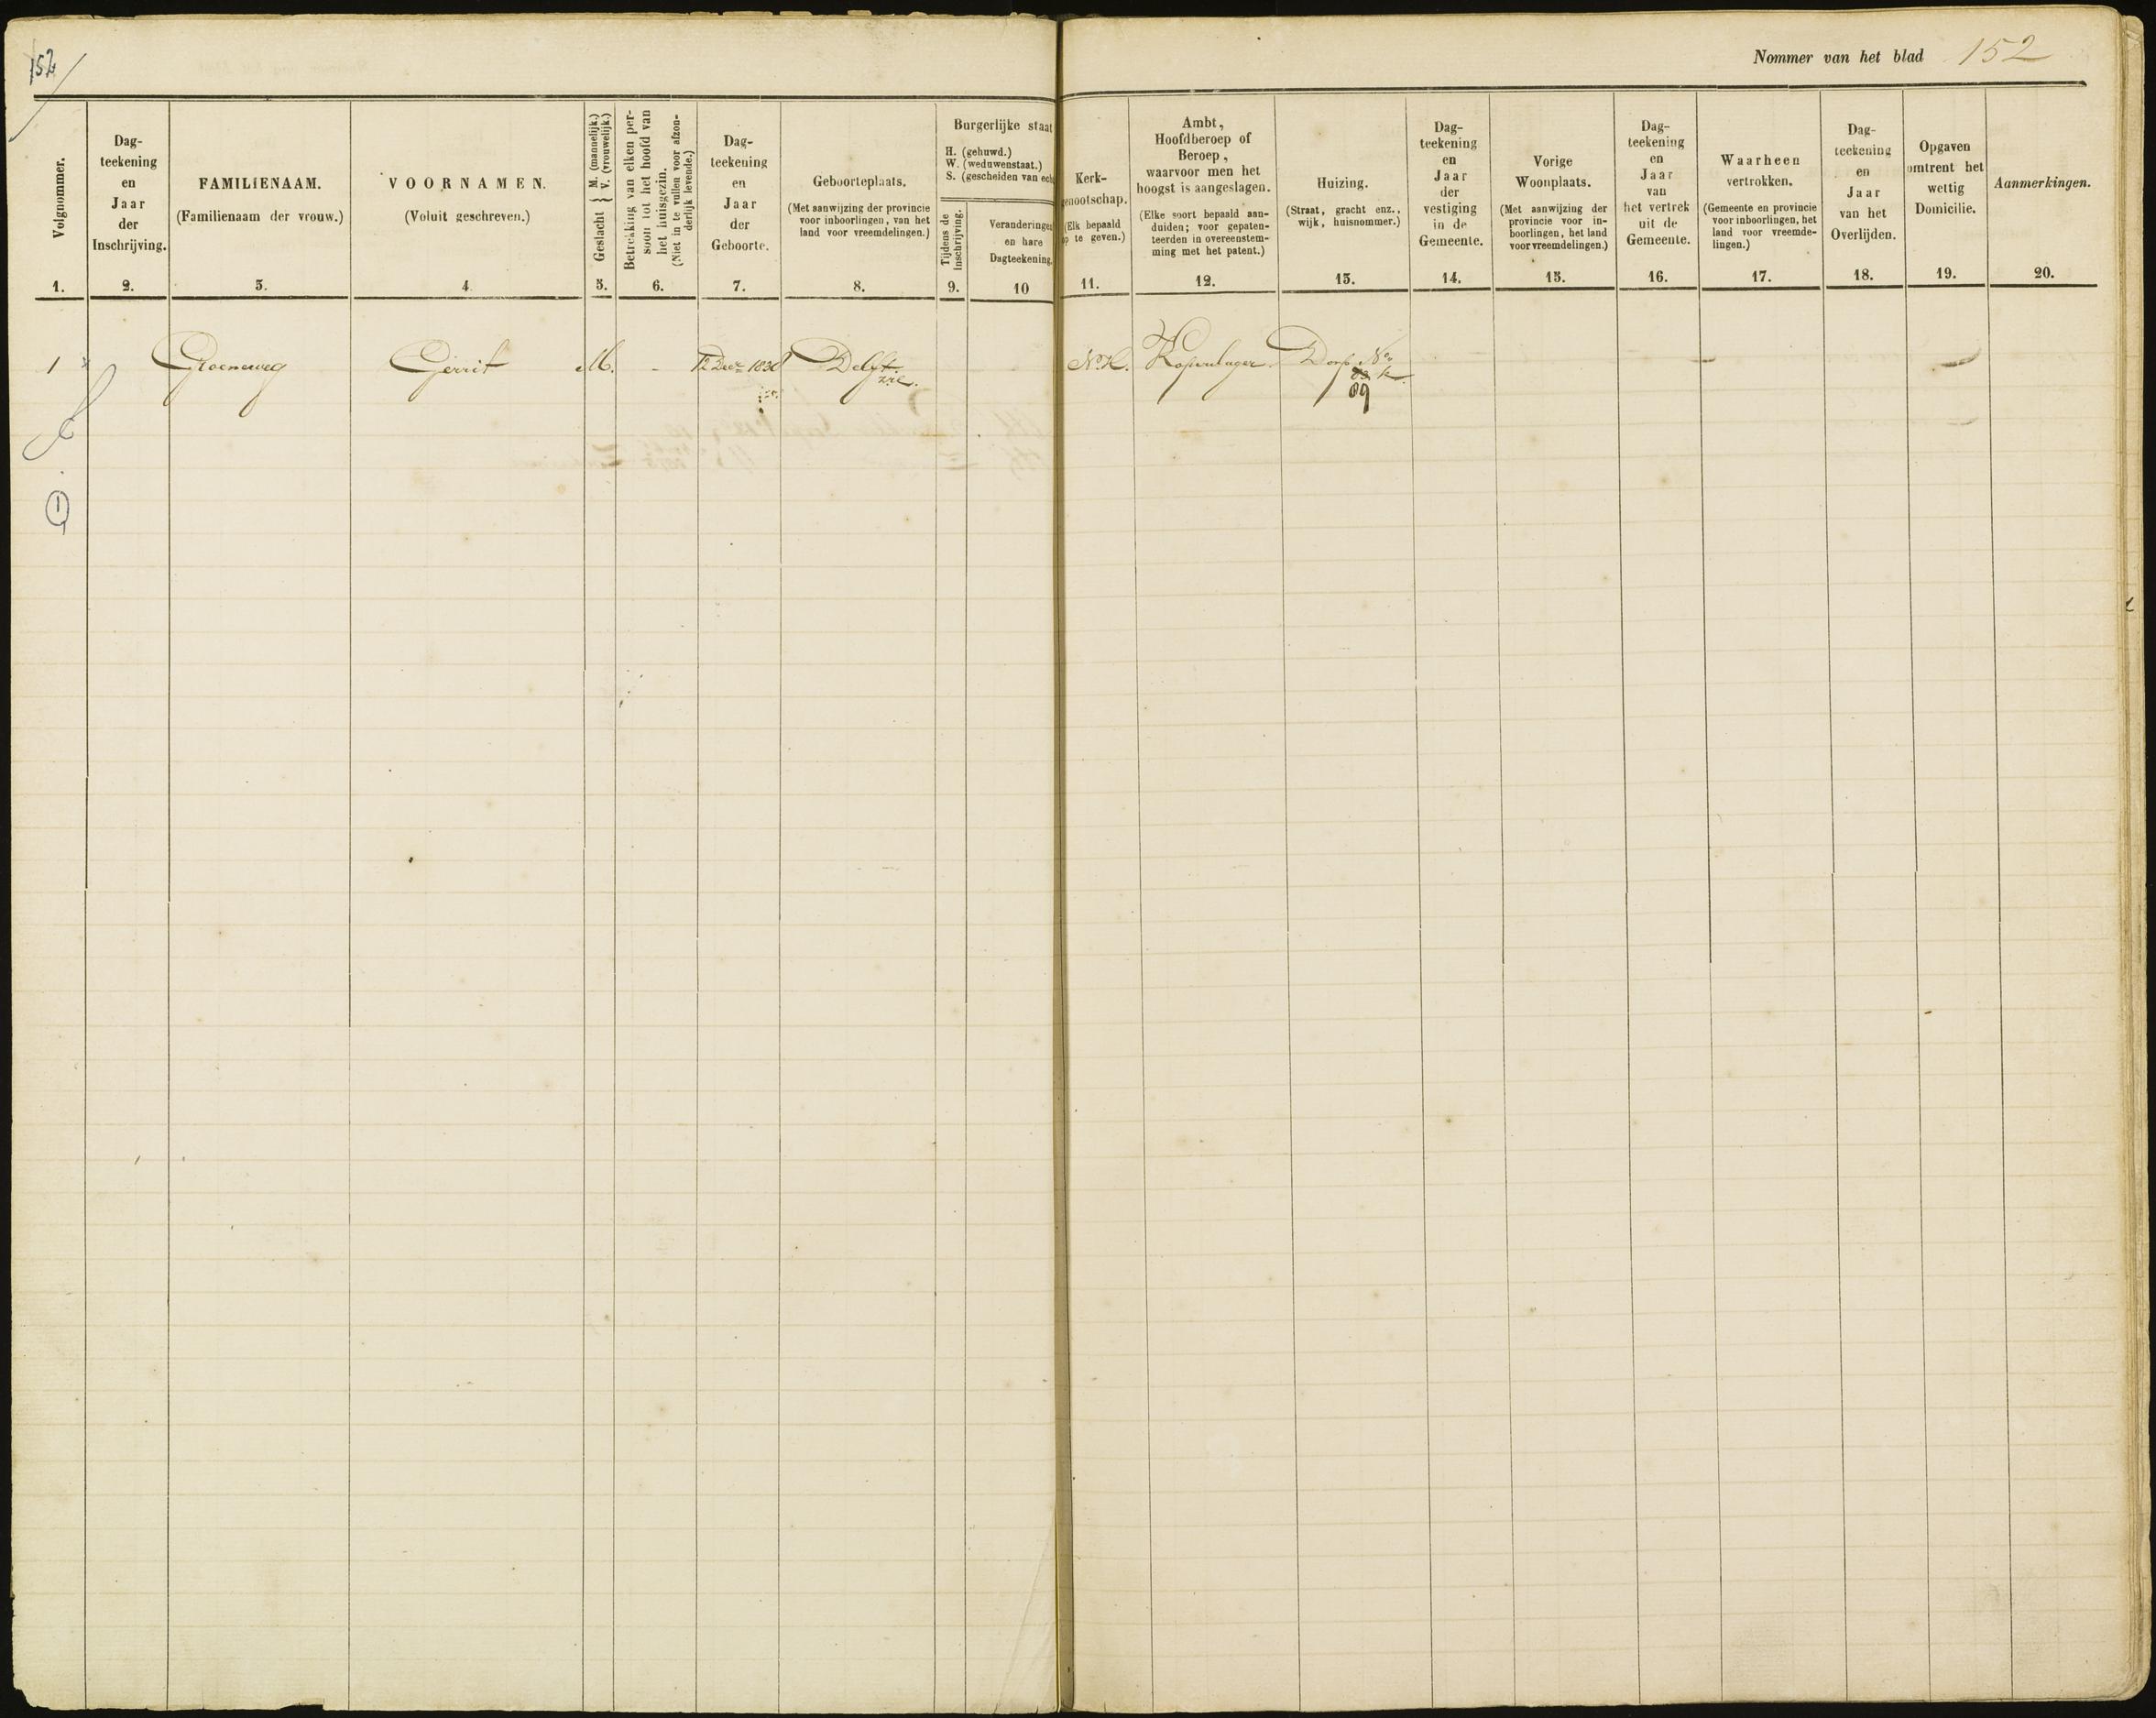 152
Nommer van het blad 152
Volgnommer.
1.
Dag-
teekening
en
Jaar
der
Inschrijving.
2.
FAMILIENAAM.
(Familienaam der vrouw.)
3.
VOORNAMEN.
(Voluit geschreven.)
4
Geslacht { M. (mannelijk.)
V. (vrouwelijk.)
5.
Betrekking van elken per-
soon tot het hoofd van
het huisgezin.
(Niet in te vullen voor afzon-
derlijk levende.)
6.
Dag-
teekening
en
Jaar
der
Geboorte.
7.
Geboorteplaats.
(Met aanwijzing der provincie
voor inboorlingen, van het
land voor vreemdelingen.)
8.
Burgerlijke staat
H. (gehuwd.)
W. (weduwenstaat.)
S. (gescheiden van ech
Tijdens de
Inschrijving.
9.
Veranderingen
en hare
Dagteekening.
10
Kerk-
genootschap.
(Elk bepaald
op te geven.)
11.
Ambt,
Hoofdberoep of
Beroep,
waarvoor men het
hoogst is aangeslagen.
(Elke soort bepaald aan-
duiden; voor gepaten-
teerden in overeenstem-
ming met het patent.)
12.
Huizing.
(Straat, gracht enz.,
wijk, huisnommer.)
13.
Dag-
teekening
en
Jaar
der
vestiging
in de
Gemeente.
14.
Vorige
Woonplaats.
(Met aanwijzing der
provincie voor in-
boorlingen, het land
voor vreemdelingen.)
15.
Dag-
teekening
en
Jaar
van
het vertrek
uit de
Gemeente.
16.
Waarheen
vertrokken.
(Gemeente en provincie
voor inboorlingen, het
land voor vreemde-
lingen.)
17.
Dag-
teekening
en
Jaar
van het
Overlijden.
18.
Opgaven
omtrent het
wettig
Domicilie.
19.
Aanmerkingen.
20.
1 Groeneweg Gerrit M. - Delft N.H. Dorp No
89
1